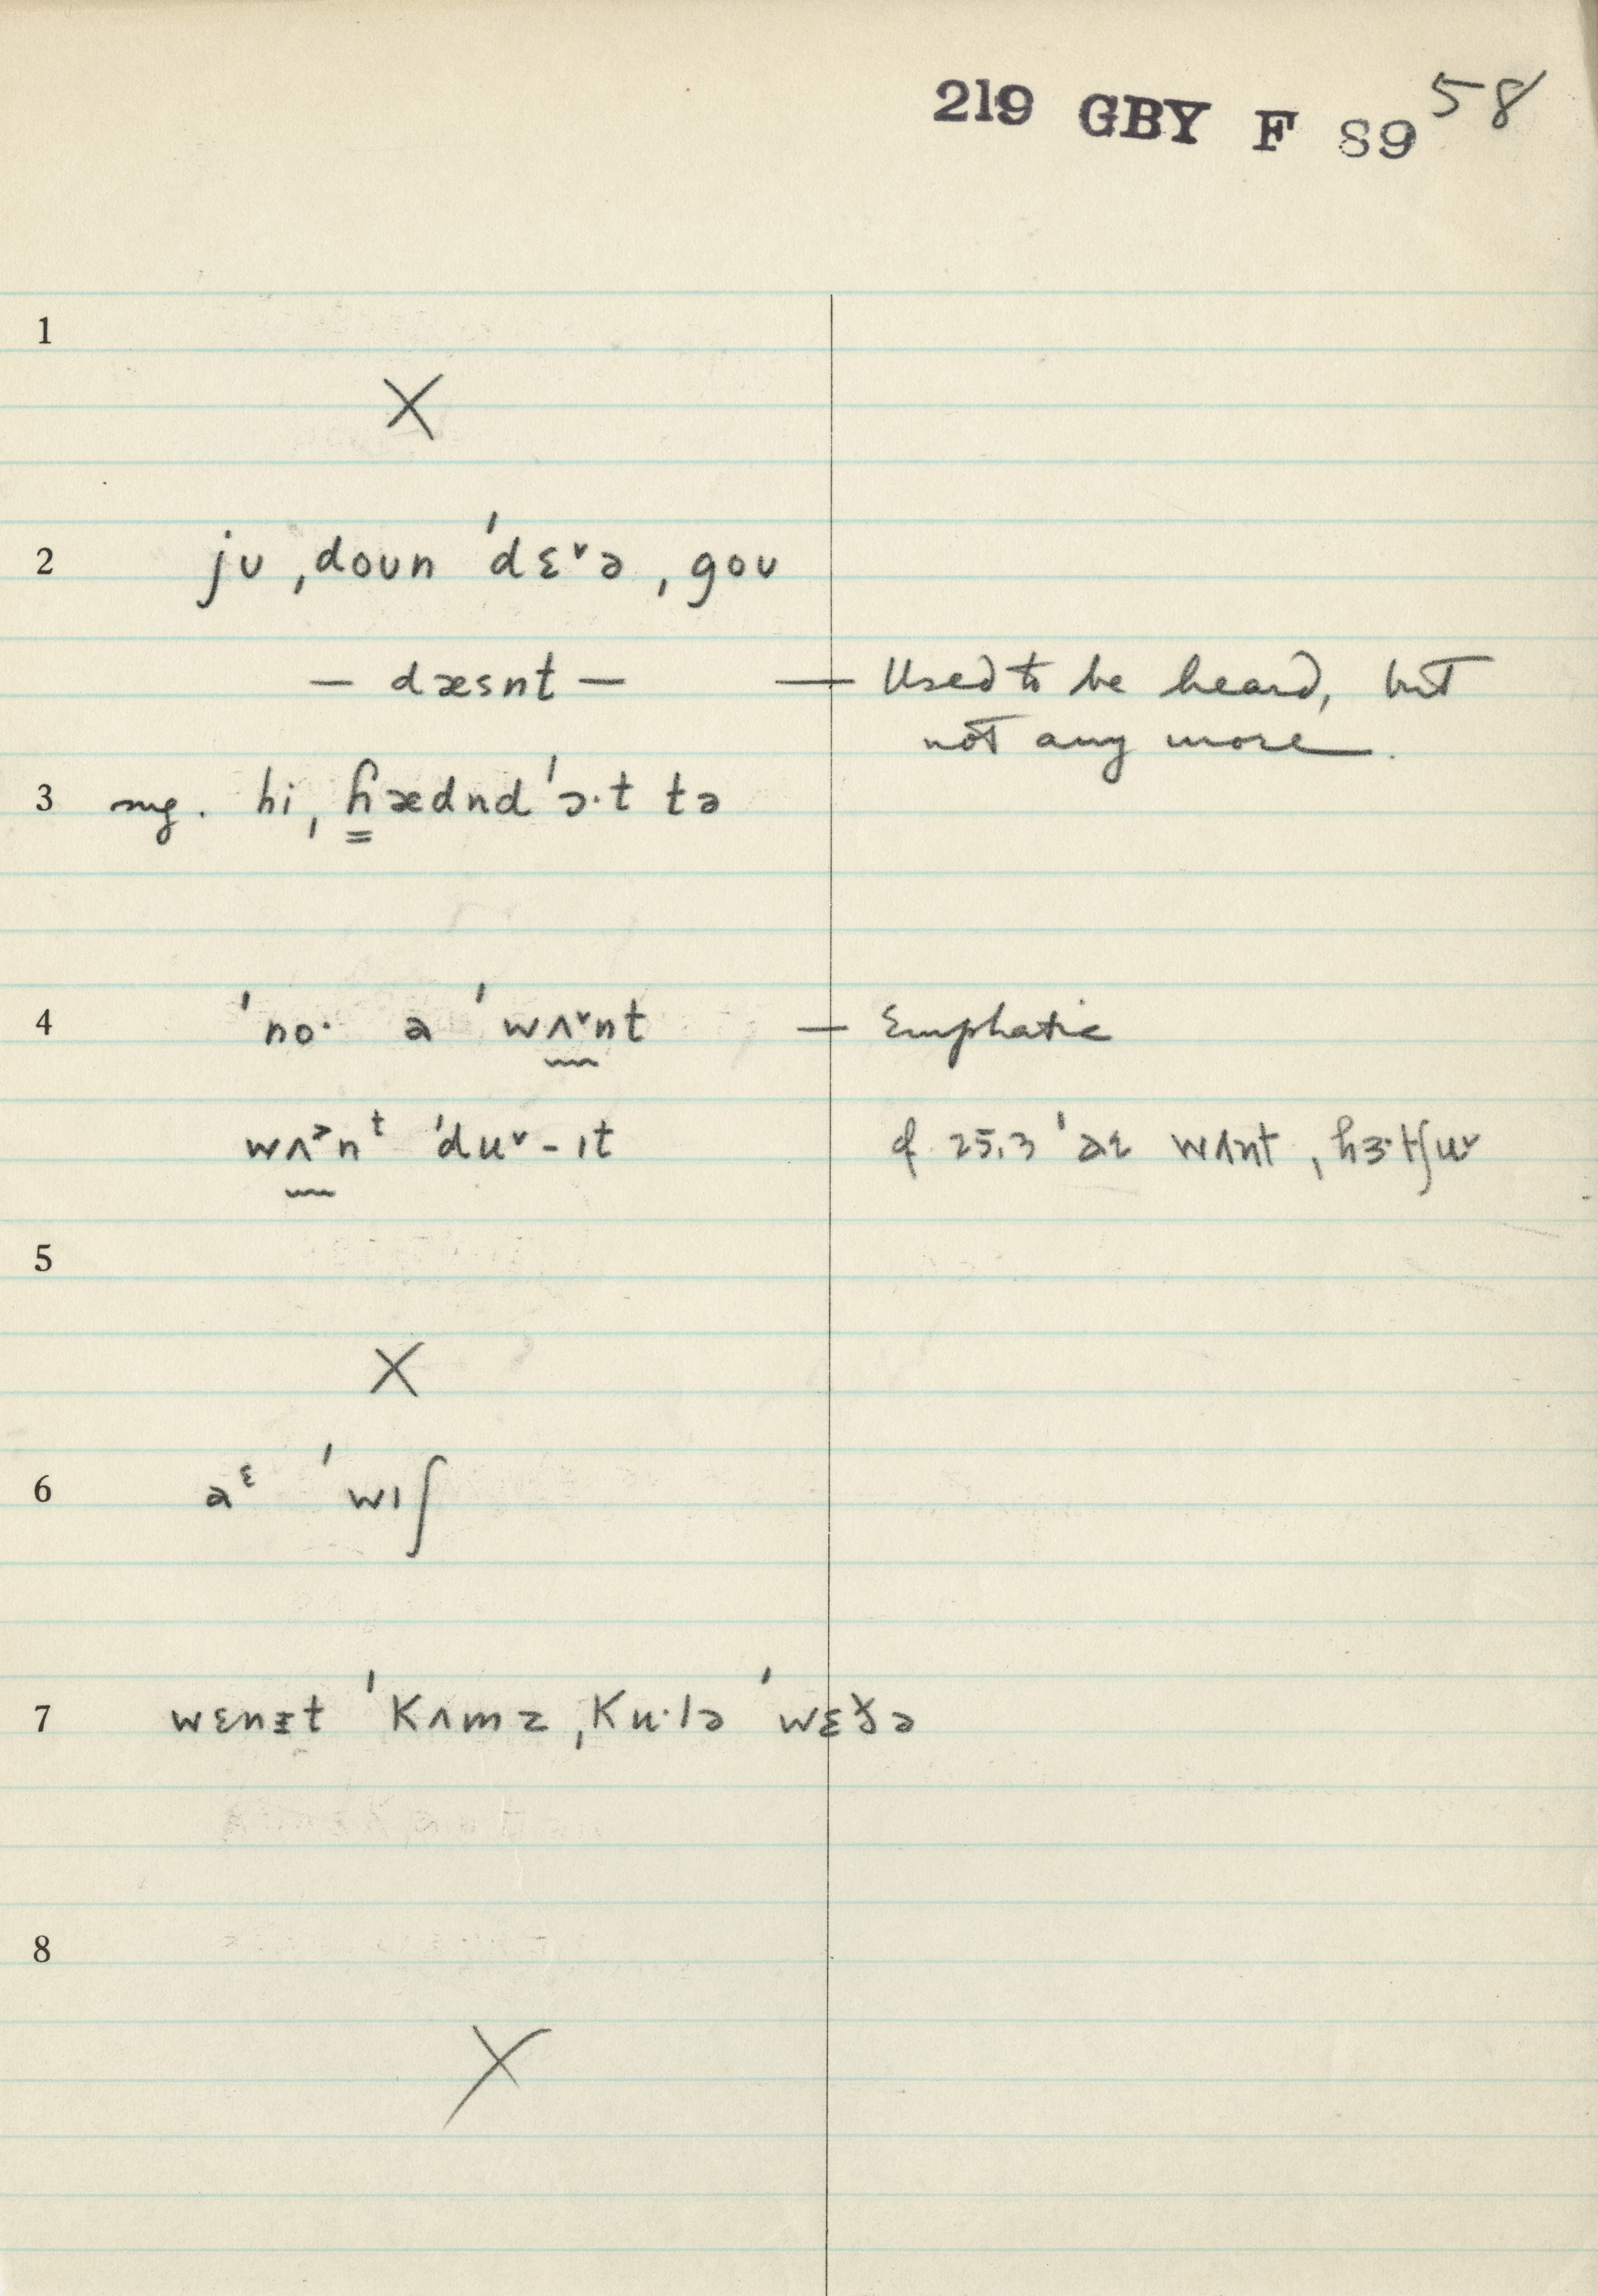 219 GBY F 89 58
1
X
2 ju ˌdoun ˈdɛ˅ə ˌgou
— dæsnt — — Used to be heard, but
not any more.
3 sug. hi ˌɦædnd ˈɔ·t tə
4 ˈno· a ˈwʌ˅nt — Emphatic
wʌ˃nᵗ ˈdu˅-ɪt cf 25.3 ˈaɛ wʌnt ˌhɜ·tʃu˅
5
X
6 aᵋ ˈwɪʃ
7 wɛnɪt ˈkʌmz ˌku·lə ˈwɛðə
8
X